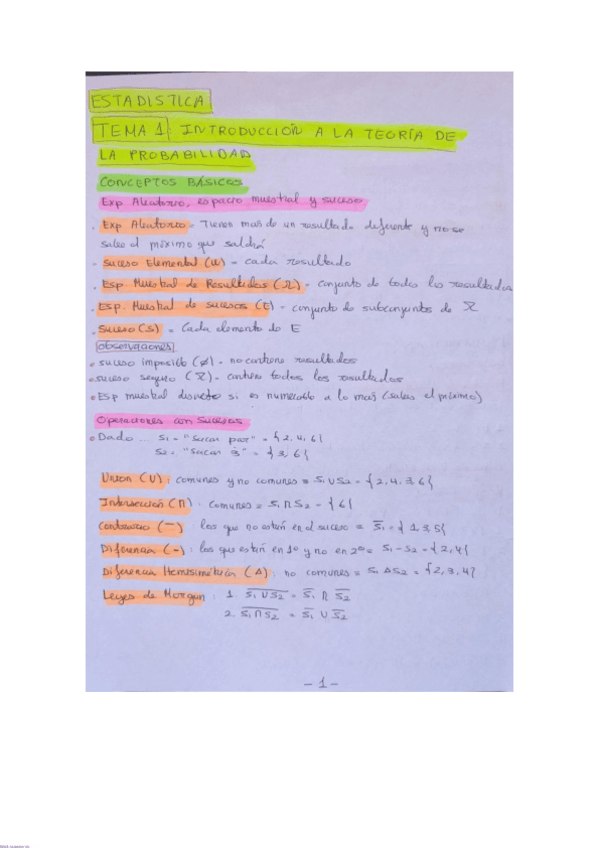 ESTADISTICA
TEMA 1: INTRODUCCIÓN A LA TEORÍA DE
LA PROBABILIDAD
CONCEPTOS BÁSICOS
Exp Aleatorio, espacio muestral y suceso
. Exp Aleatorio = Tienen mas de un resultado diferente y no se
sabe el próximo que saldrá
. Suceso Elemental (ω) = cada resultado
. Esp. Muestral de Resultados (Ω) = conjunto de todos los resultados
. Esp. Muestral de sucesos (E) = conjunto de subconjuntos de Ω
. Suceso (S) = Cada elemento de E
observaciones
• suceso imposible (∅) = no contiene resultados
• suceso seguro (Ω) = contiene todos los resultados
• Esp muestral discreto si es numerable a lo mas (sabes el próximo)
Operaciones con Sucesos
• Dado ... S1 = "Sacar par" = {2, 4, 6}
S2 = "Sacar 3̇" = {3, 6}
Union (U): comunes y no comunes = S1 U S2 = {2, 4, 3, 6}
Intersección (∩): comunes = S1 ∩ S2 = {6}
Contrario (—) los que no están en el suceso = S̅1 = {1, 3, 5}
Diferencia (-): los que están en 1º y no en 2º = S1 - S2 = {2, 4}
Diferencia (Δ): no comunes = S1 Δ S2 = {2, 3, 4}
Leyes de Morgan: 1. \overline{S1 U S2} = S̅1 ∩ S̅2
2. \overline{S1 ∩ S2} = S̅1 U S̅2
- 1 -